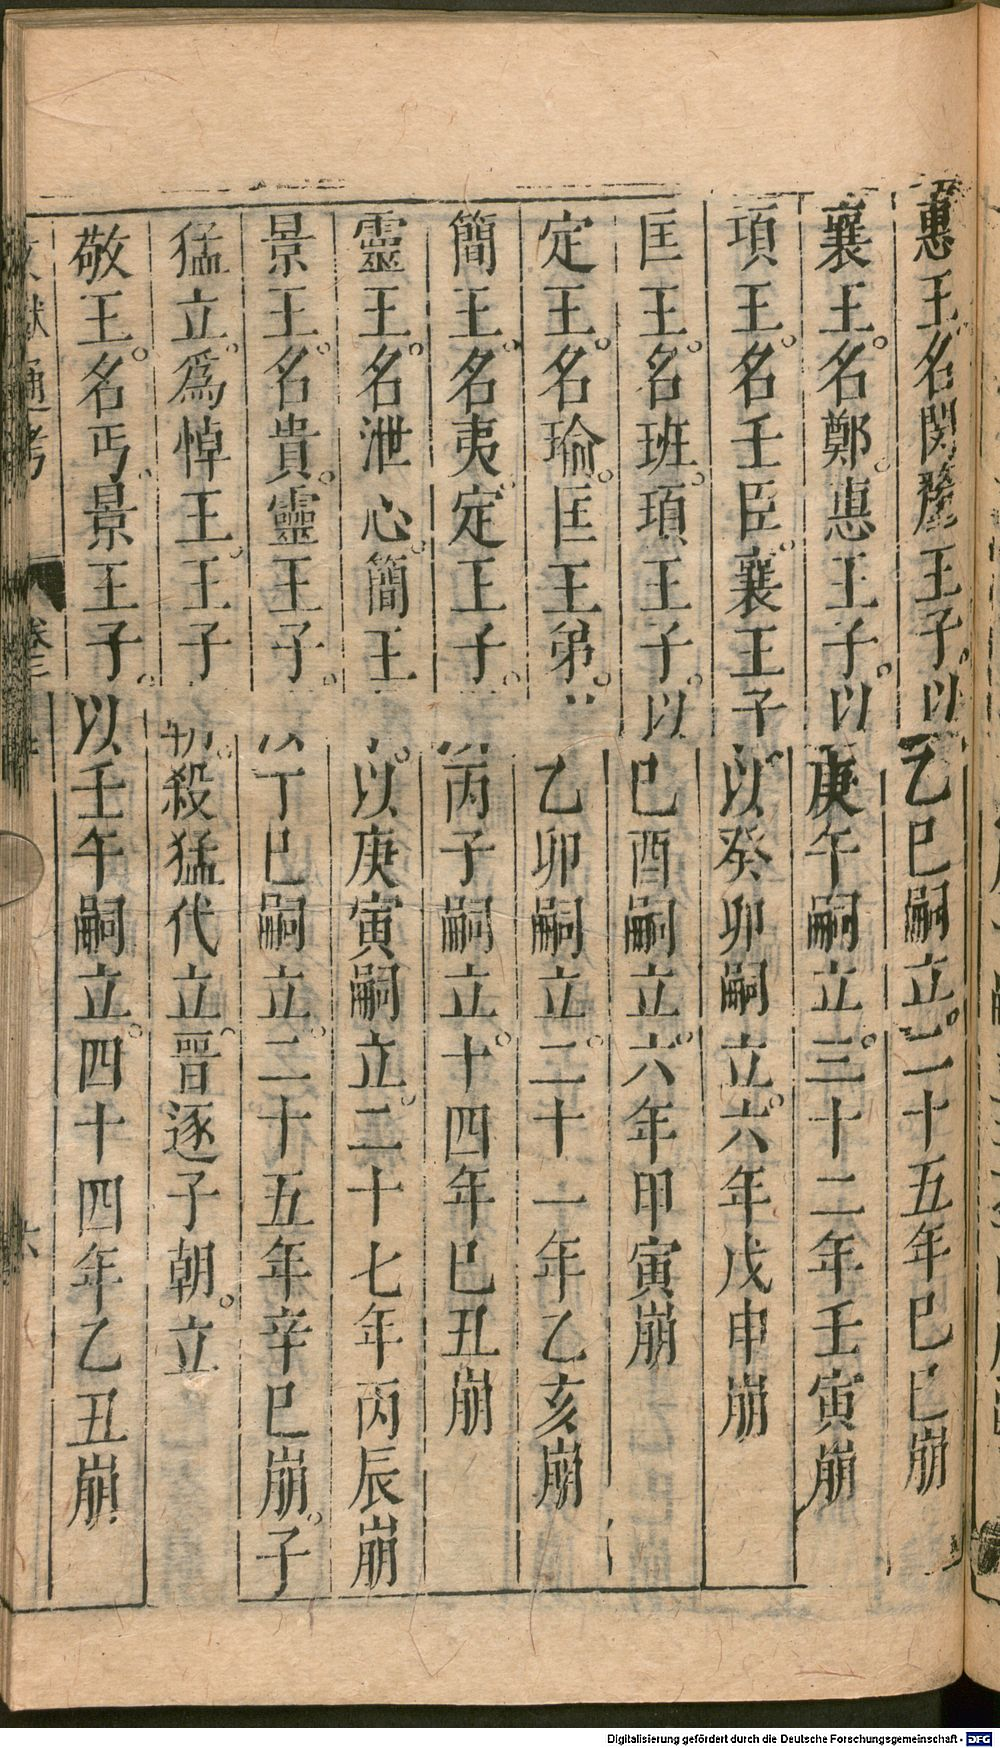 惠王。名閬釐王子。以乙巳嗣立。二十五年巳巳崩
襄王。名鄭。惠王子。以庚午嗣立。三十二年壬寅崩
項王。名壬臣。襄王子以癸卯嗣立。六年戊申崩
匡王。名班。項王子。以巳酉嗣立。六年甲寅崩
定王。名瑜。匡王弟。以乙卯嗣立。二十一年乙亥崩
簡王。名夷。定王子。以丙子嗣立。十四年巳丑崩
靈王。名泄心。簡王子。以庚寅嗣立。二十七年丙辰崩
景王。名貴。靈王子。以丁巳嗣立。二十五年辛巳崩。子
猛立。爲悼王。王子朝。殺猛代立。晉逐子朝。立
敬王。名丐。景王子。以壬午嗣立。四十四年乙丑崩
文獻通考 卷三 六
Digitalisierung gefördert durch die Deutsche Forschungsgemeinschaft - DFG